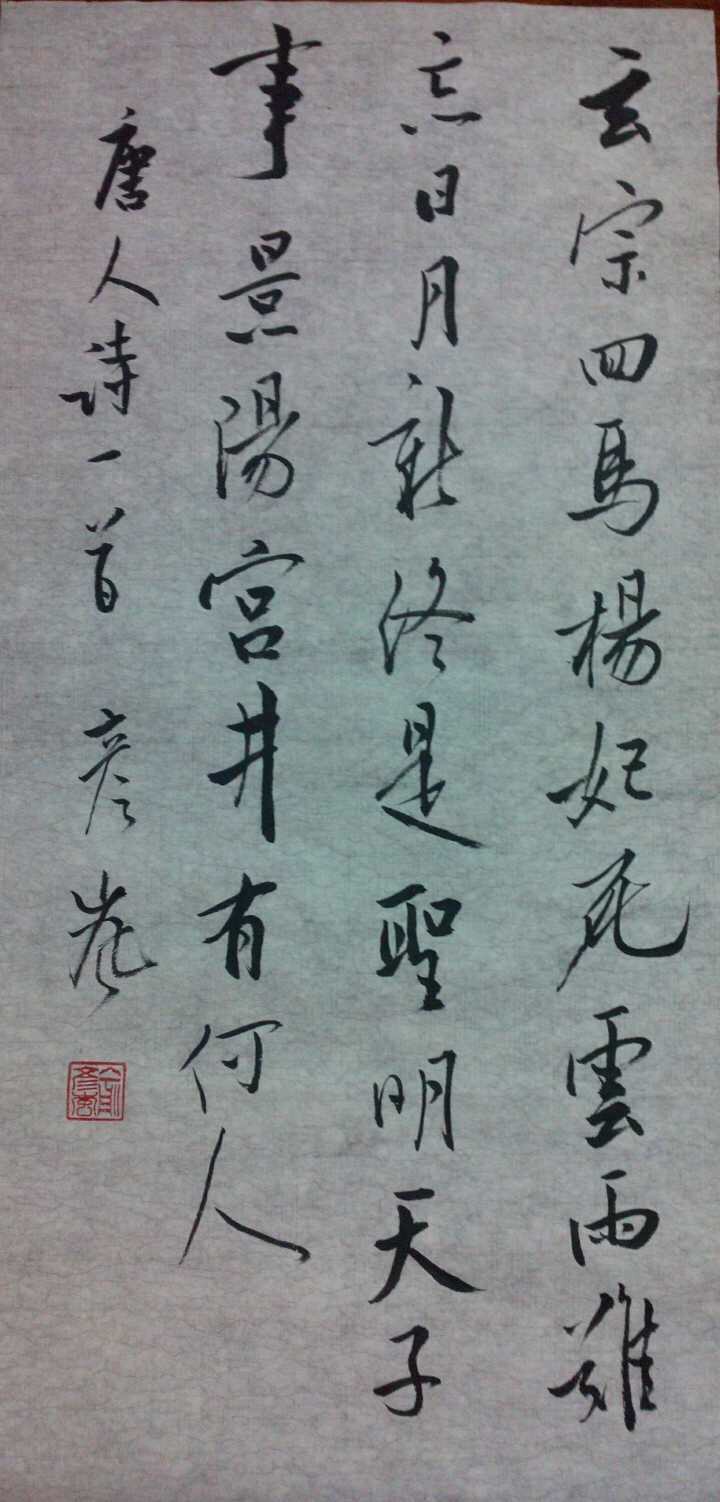 玄宗回馬楊妃死雲雨難
忘日月新終是聖明天子
事景陽宫井有何人
唐人詩一首 彦